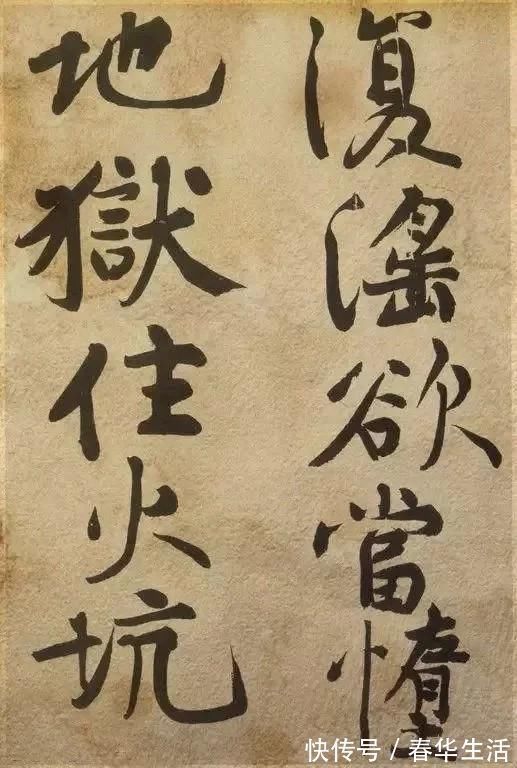 復滛欲當墮
地獄住火坑
快传号 / 春华生活